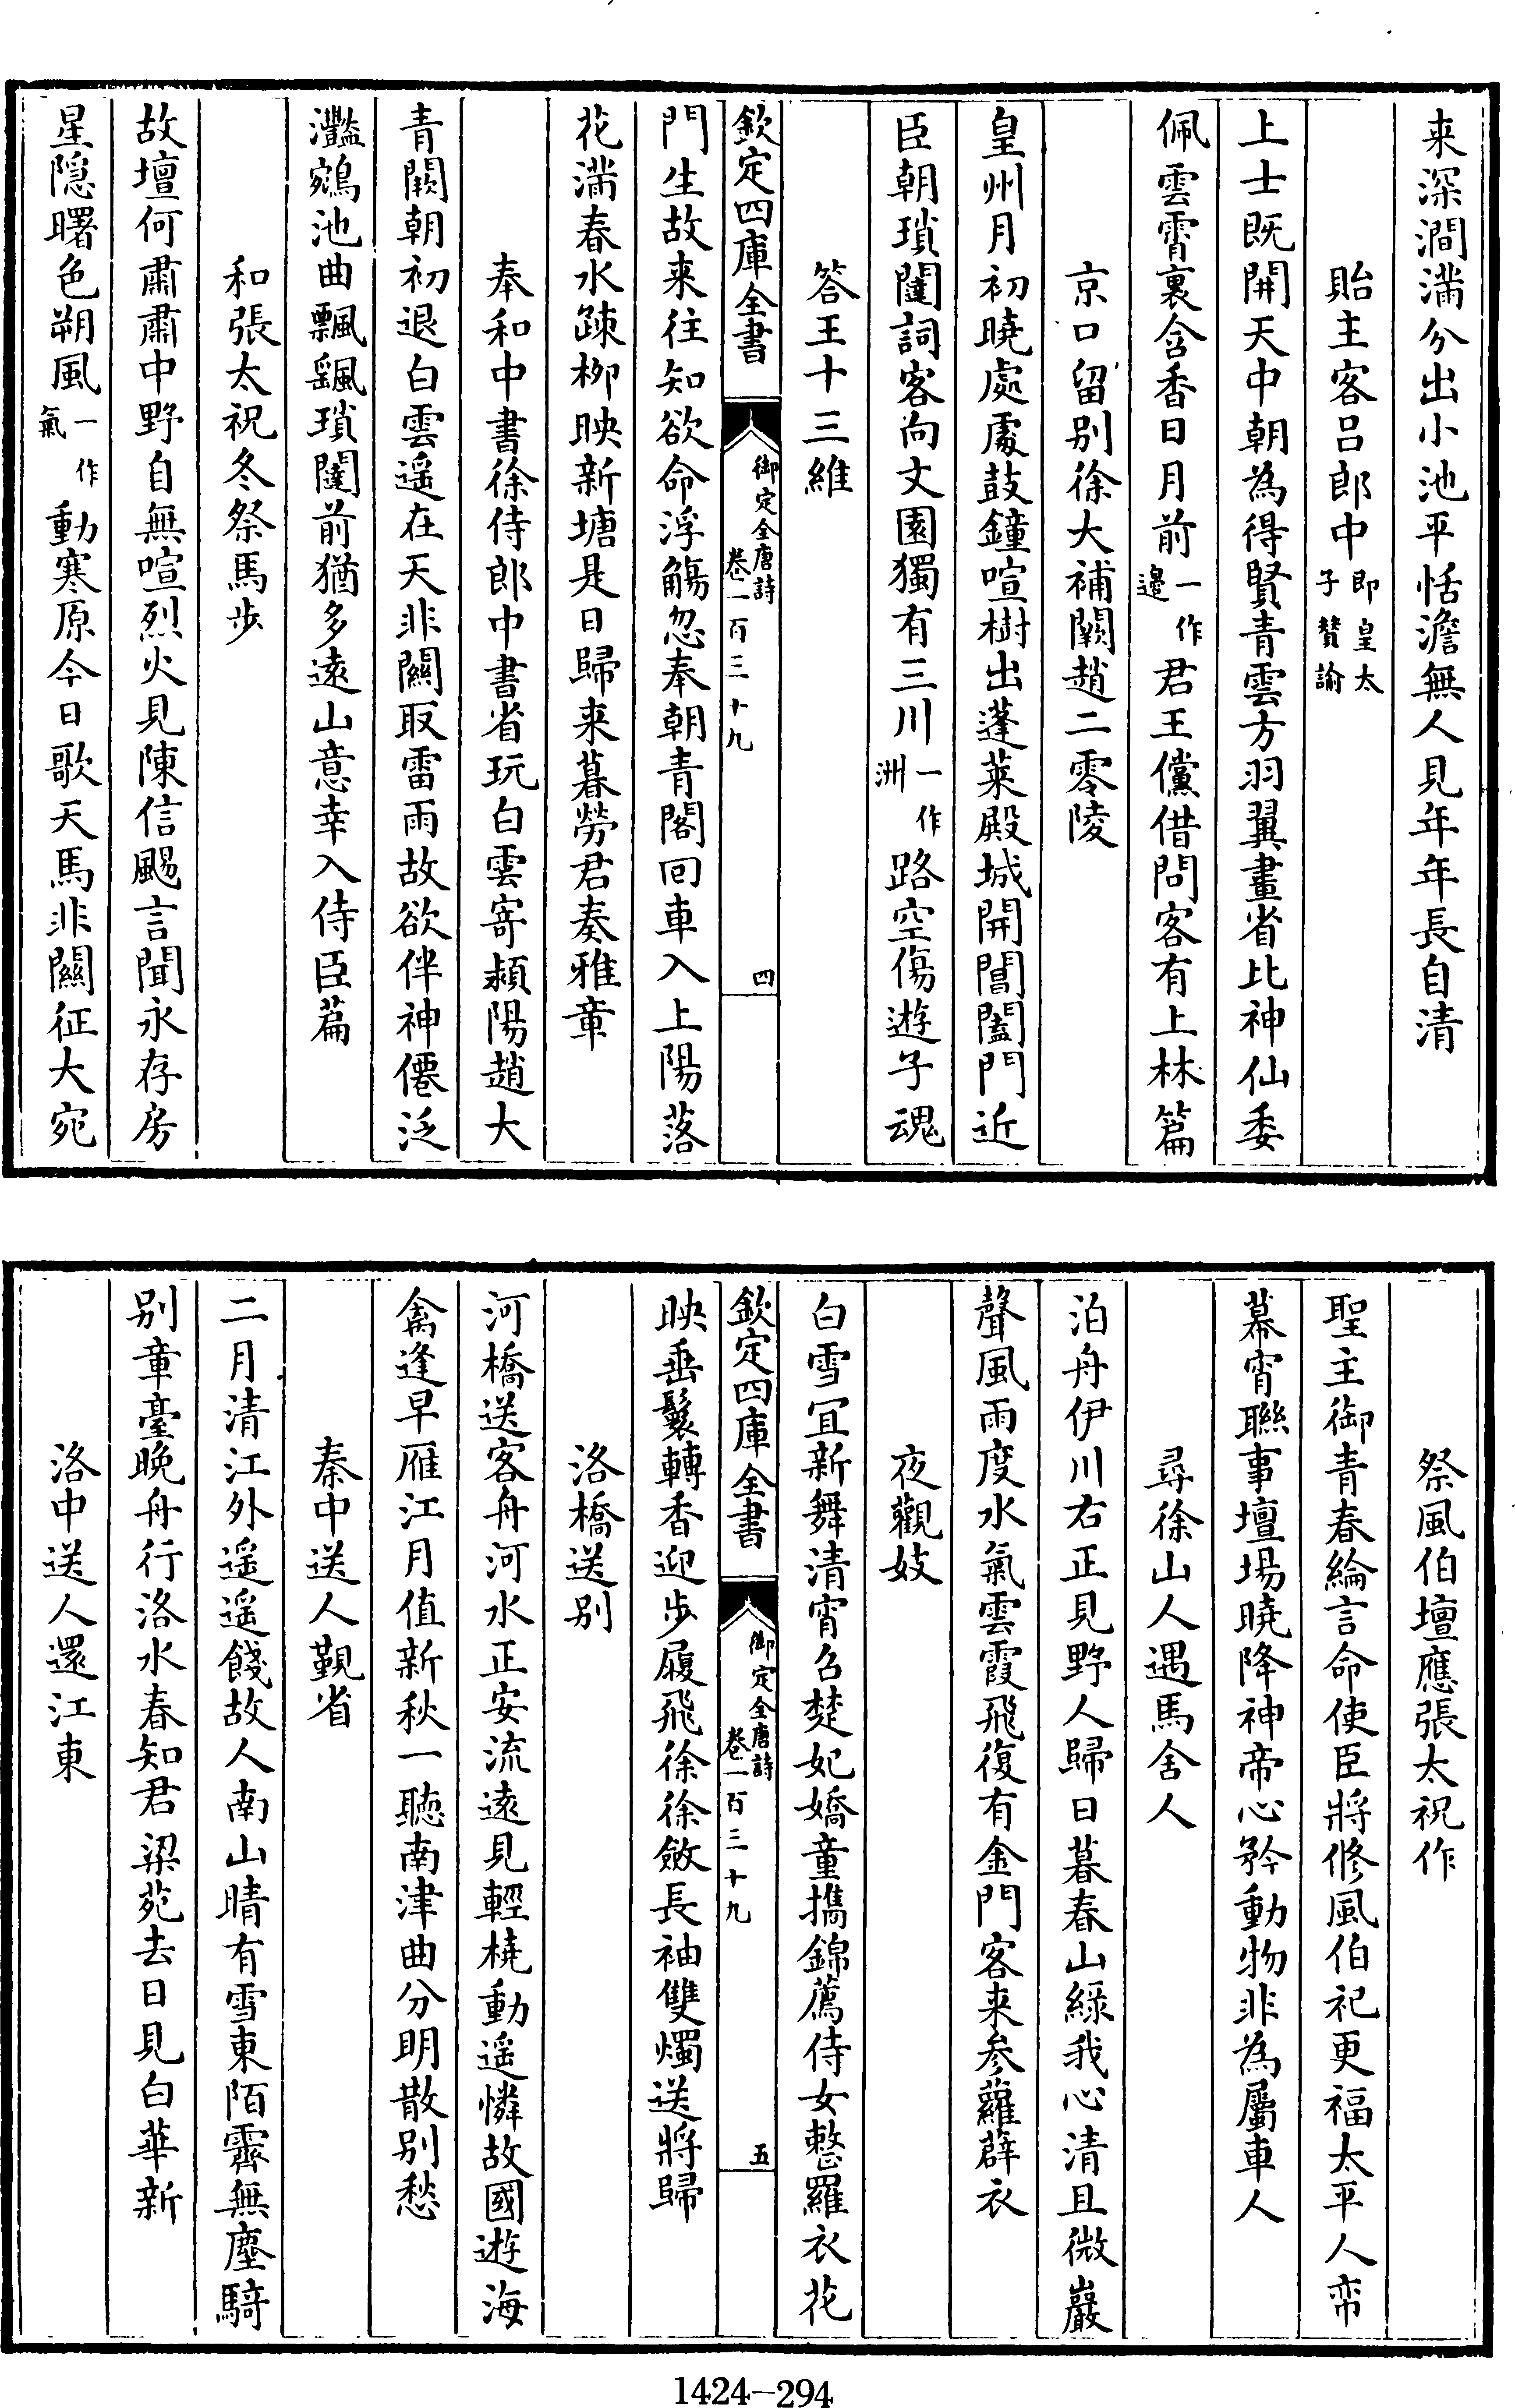 来深澗滿分出小池平恬澹無人見年年長自清
貽主客呂郎中即皇太子贊諭
上士既開天中朝為得賢青雲方羽翼畫省比神仙委
佩雲霄裏含香日月前一作邉君王儻借問客有上林篇
京口留别徐大補闕趙二零陵
皇州月初曉處處鼓鐘喧樹出蓬萊殿城開閶闔門近
臣朝瑣闥詞客向文園獨有三川一作洲路空傷遊子魂
答王十三維
欽定四庫全書
御定全唐詩
卷一百三十九
四
門生故来往知欲命浮觴忽奉朝青閣回車入上陽落
花滿春水疎栁映新塘是日歸来暮勞君奏雅章
奉和中書徐侍郎中書省玩白雲寄潁陽趙大
青闕朝初退白雲遥在天非關取雷雨故欲伴神僊泛
灩鵷池曲飄颻瑣闥前猶多遠山意幸入侍臣篇
和張太祝冬祭馬步
故壇何肅肅中野自無喧烈火見陳信颺言聞永存房
星隠曙色朔風一作氣動寒原今日歌天馬非關征大宛
祭風伯壇應張太祝作
聖主御青春綸言命使臣將修風伯祀更福太平人帟
幕宵聯事壇場曉降神帝心矜動物非為屬車人
尋徐山人遇馬舍人
泊舟伊川右正見野人歸日暮春山緑我心清且微巖
聲風雨度水氣雲霞飛復有金門客来參蘿薜衣
夜觀妓
白雪冝新舞清宵召楚妃嬌童攜錦薦侍女整羅衣花
欽定四庫全書
御定全唐詩
卷一百三十九
五
映垂鬟轉香迎步履飛徐徐斂長袖雙燭送將歸
洛橋送别
河橋送客舟河水正安流遠見輕橈動遥憐故國遊海
禽逢早雁江月值新秋一聽南津曲分明散别愁
秦中送人覲省
二月清江外遥遥餞故人南山晴有雪東陌霽無塵騎
别章臺晚舟行洛水春知君梁苑去日見白華新
洛中送人還江東
1424-294